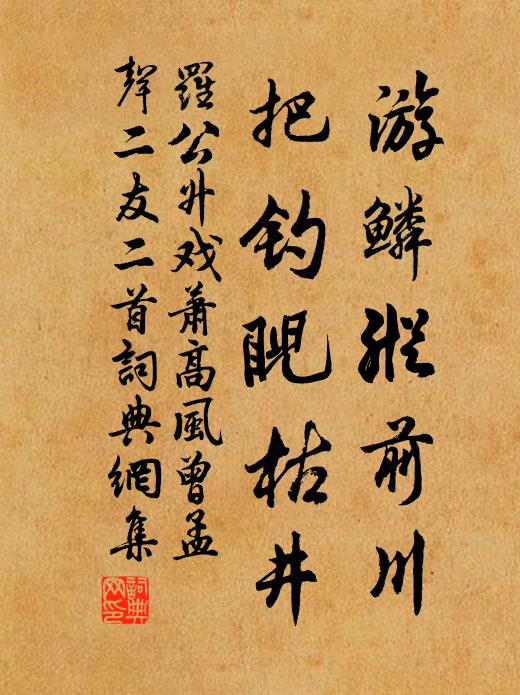 游鳞纵前川
把钓眤枯井
羅公升戏萧高風曾孟
聲二友二首詞典網集
詞典网印